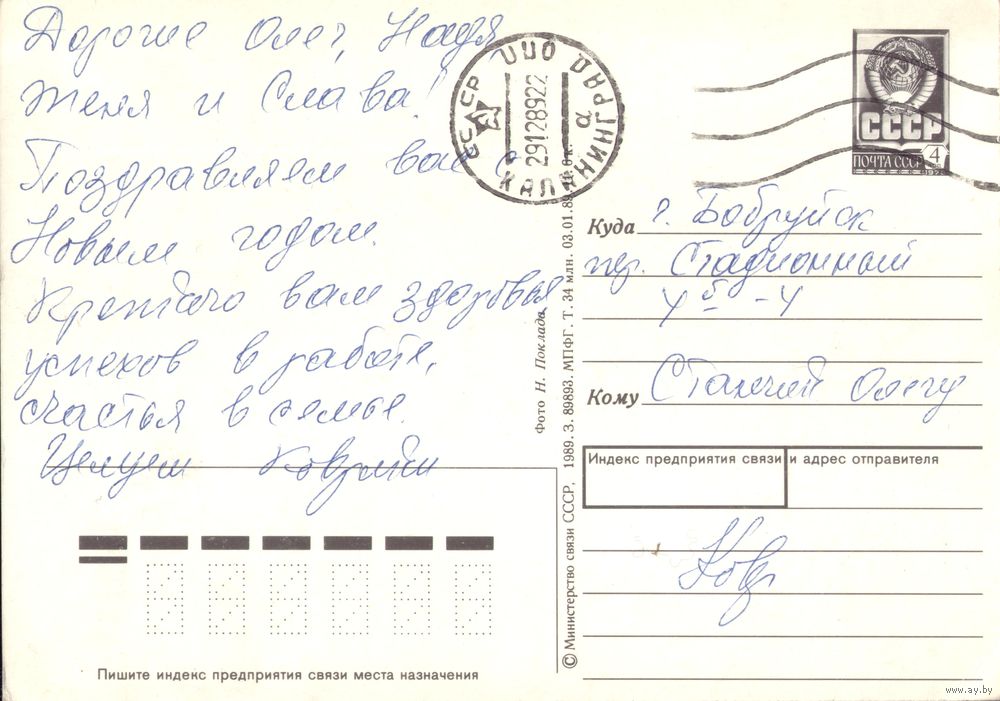 Дорогие Олег, Надя
Женя и Слава!
Поздравляем вас с
Новым годом.
Крепкого вам здоровья,
успехов в работе,
счастья в семье.
Целуем
СССР
29128922
КАЛИНИНГРАД
а
СССР
ПОЧТА СССР 4
Куда г. Бобруйск
пер. Стадионный
4 -4
Кому Олегу
Индекс предприятия связи и адрес отправителя
Пишите индекс предприятия связи места назначения
Фото Н. Поклада
© Министерство связи СССР, 1989. З. 89893. МПФГ. Т. 34 млн. 03.01.89.
www.ay.by